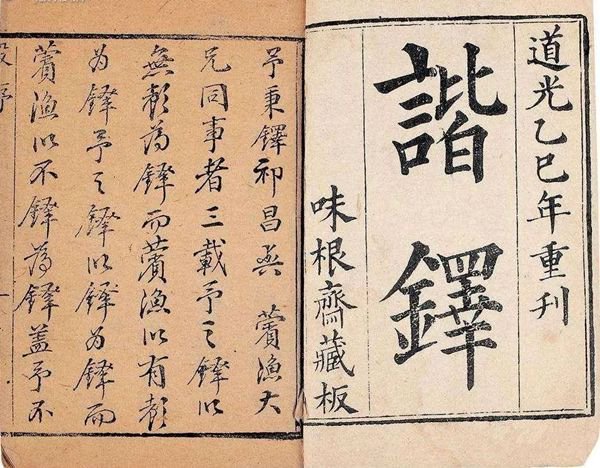 道光乙巳年重刊
諧鐸
味根齋藏板
予秉鐸祁昌與薲漁大
兄同事者三載予之鐸以
無為鐸而薲漁以有
為鐸予之鐸以鐸為鐸而
薲漁以不鐸為鐸蓋予不